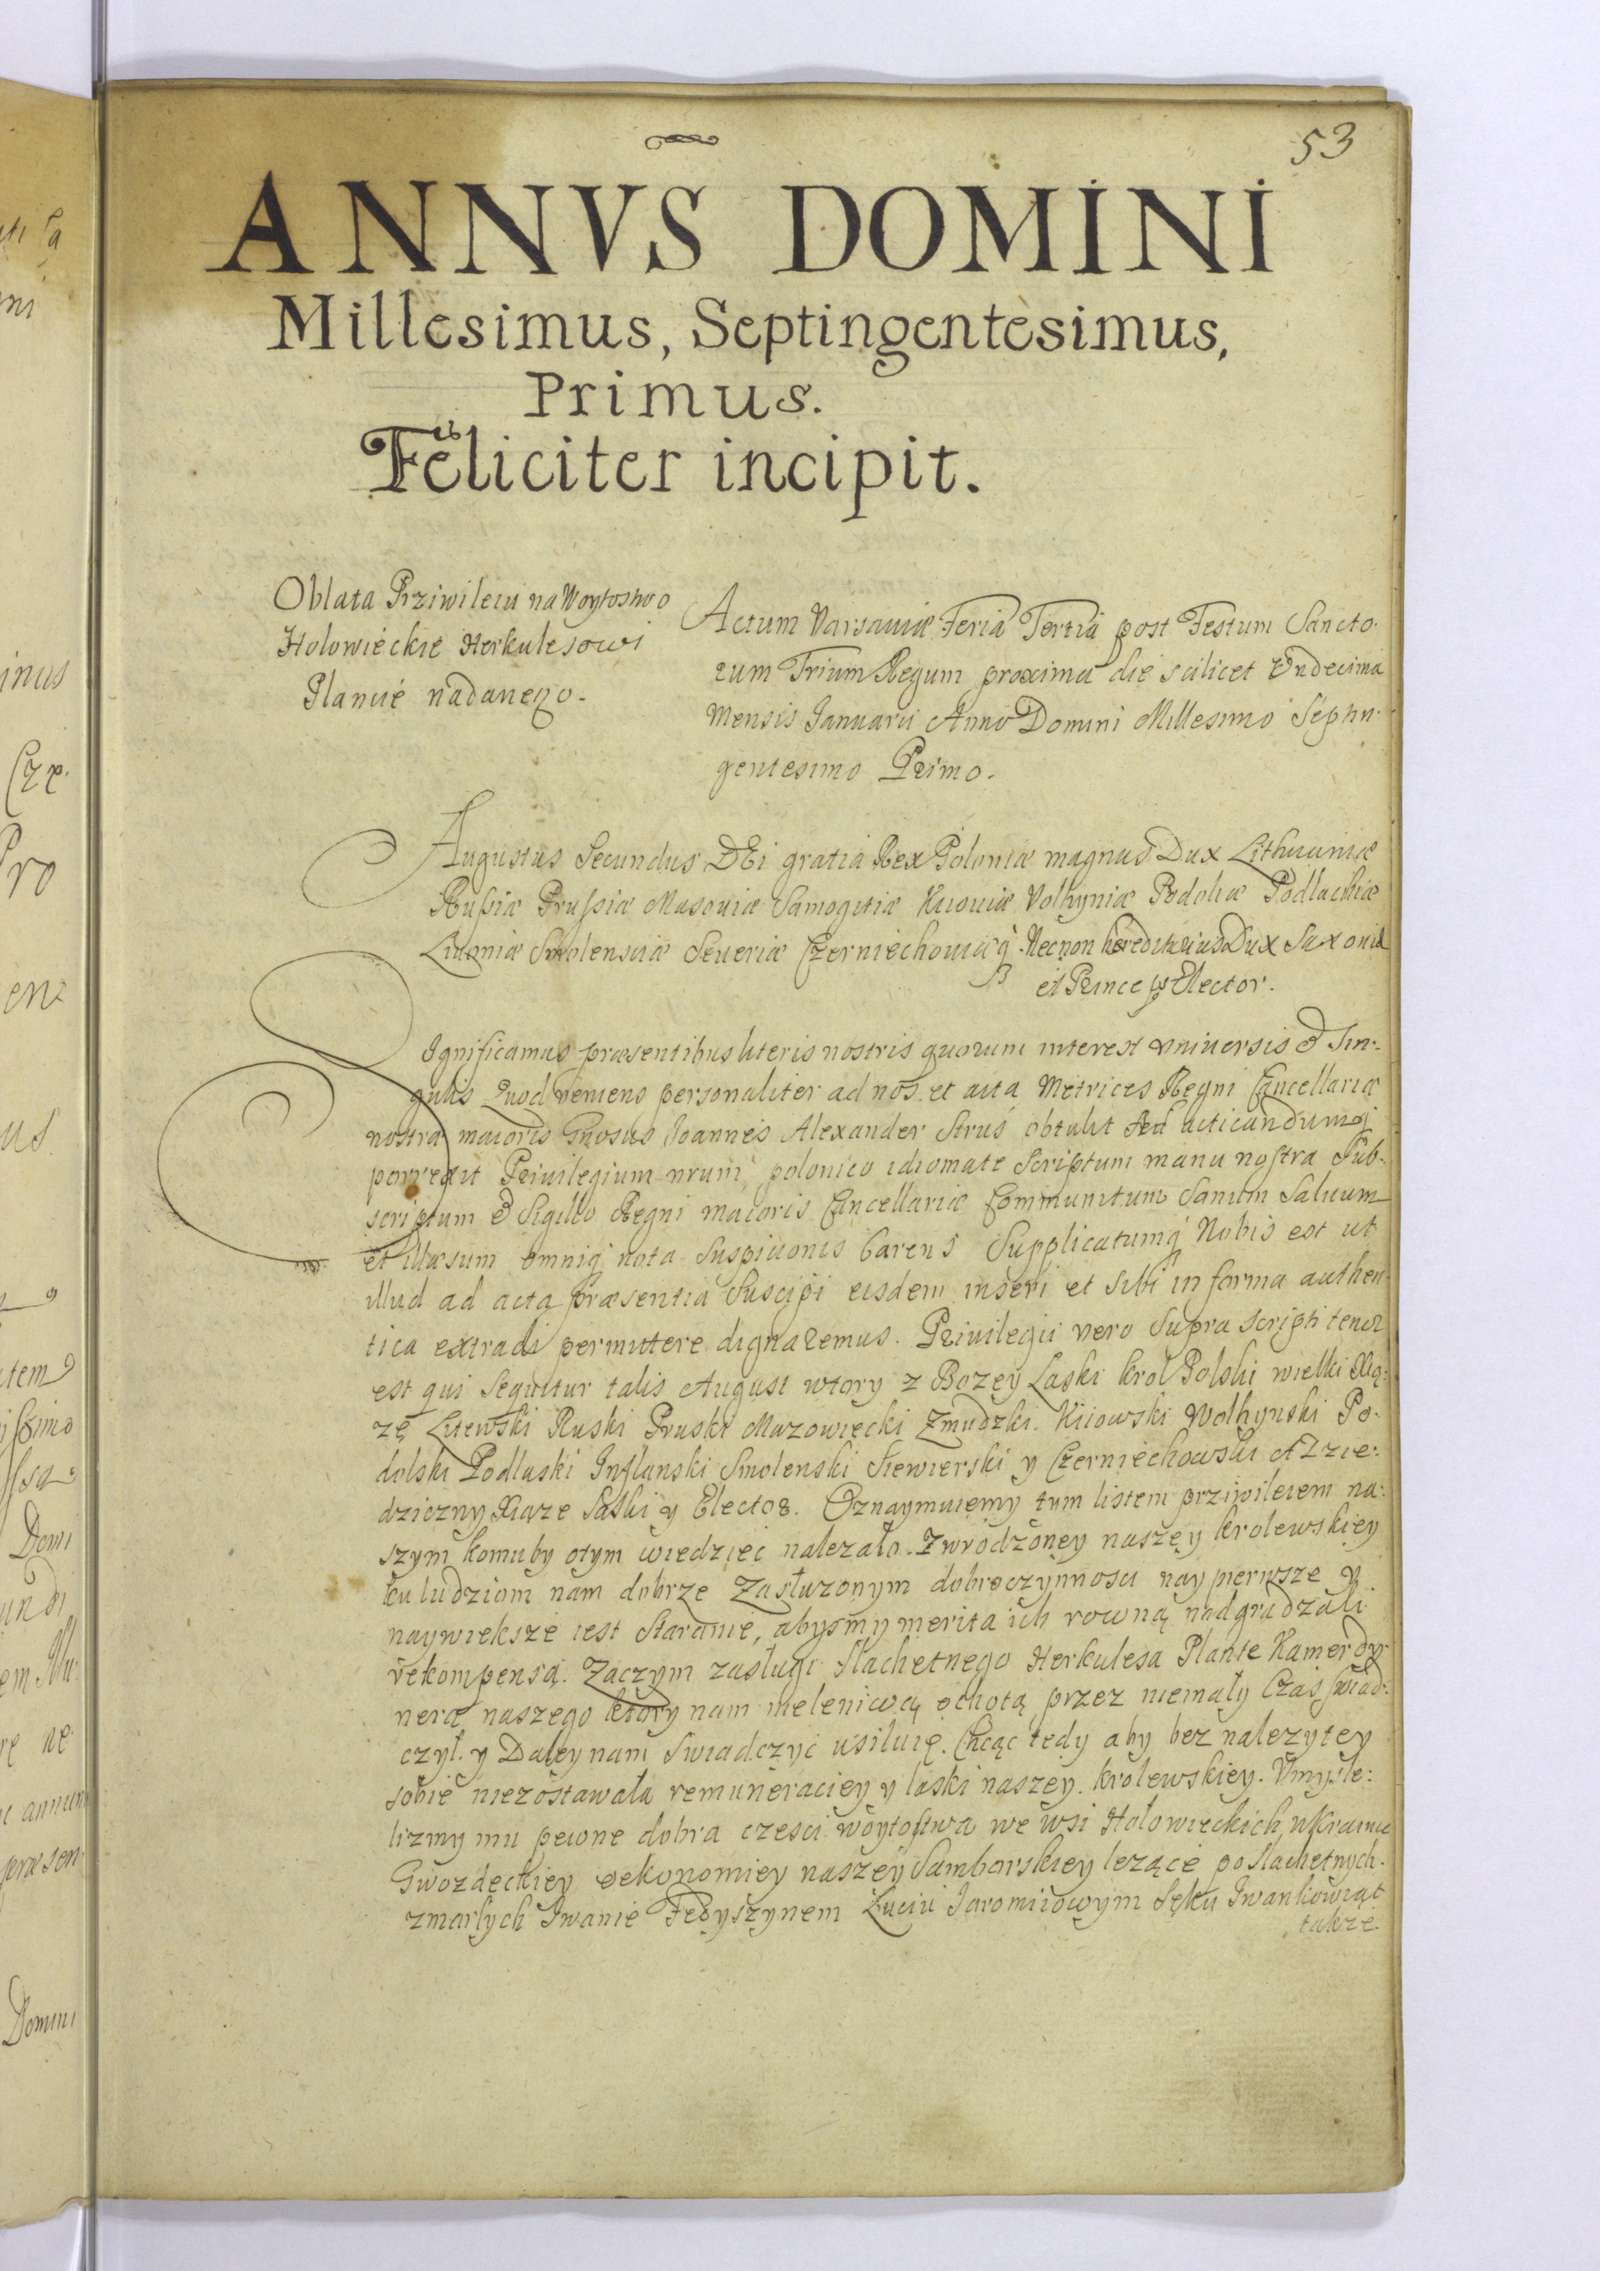 53
ANNVS DOMINI
Millesimus, Septingentesimus,
Primus.
Feliciter incipit.
Oblata Prziwileiu na Woytostwo
Holowieckie Herkulesowi
Plancie nadanego.
Actum Varsaviæ Feria Tertia post Festum Sancto-
rum Trium Regum proxima die scilicet Vndecima
Mensis Ianuarii Anno Domini Millesimo Septin-
gentesimo Primo.
Augustus Secundus DEi gratia Rex Poloniæ magnus Dux Lithuaniæ
Russiæ Prussiæ Masouiæ Samogitiæ Kiiouiæ Volhyniæ Podoliæ Podlachiæ
Liuoniæ Smolensciæ Seueriæ Czerniechouiæq́ Necnon hæreditarius Dux Saxoniæ
et Princeps Elector.
Significamus præsentibus literis nostris quorum interest vniuersis & Sin-
gulis Quod veniens personaliter ad nos et acta Metrices Regni Cancellariæ
nostræ maioris Gnosus Joannes Alexander Strus obtulit ad acticandumq́
porrexit Priuilegium nrum, polonico idiomate scriptum manu nostra Sub-
scriptum & Sigillo Regni maioris Cancellariæ Communitum Sanum Saluum
et illæsum omniq́ nota Suspicionis Carens Supplicatumq́ Nobis est ut
illud ad acta præsentia Suscipi eisdem inseri et Sibi in forma authen-
tica extradi permittere dignaremus. Priuilegii vero Supra scripti tenor
est qui Sequitur talis August wtory z Bozey Laski krol Polski wielki Xią-
zę Litewski Ruski Pruski Mazowiecki Zmudzki Kiiowski Wolhynski Po-
dolski Podlaski Inflanski Smolenski Siewierski y Czerniechowski A Dzie:
dziczny Xiąze Saski y Elector. Oznaymuiemy tym listem prziwileiem na:
szym komuby otym wiedziec nalezało. Zwrodzoney naszey krolewskiey
ku ludziom nam dobrze Zasłuzonym dobroczynnosci naypierwsze y
naywieksze iest staranie, abysmy merita ich rowną nadgradzali
rekompensą. Zaczym zasługi slachetnego Herkulesa Plante Kamerdy-
nera naszego ktory nam nieleniwą ochotą przez niemały Czas swiad-
czył. y Daley nam swiadczyć usiłuię. Chcąc tedy aby bez nalezytey
sobie niezostawała remuneraciey y laski naszey krolewskiey. Vmysle:
lizmy mu pewne dobra czesci woytostwa we wsi Hołowieckich w Krainie
Gwozdeckiey oekonomiey naszey Samborskiey lezące po slachetnych
zmarłych Iwanie Fedyszynem Łuciu Jaromiiowym Sęku Iwankowiąt
takze